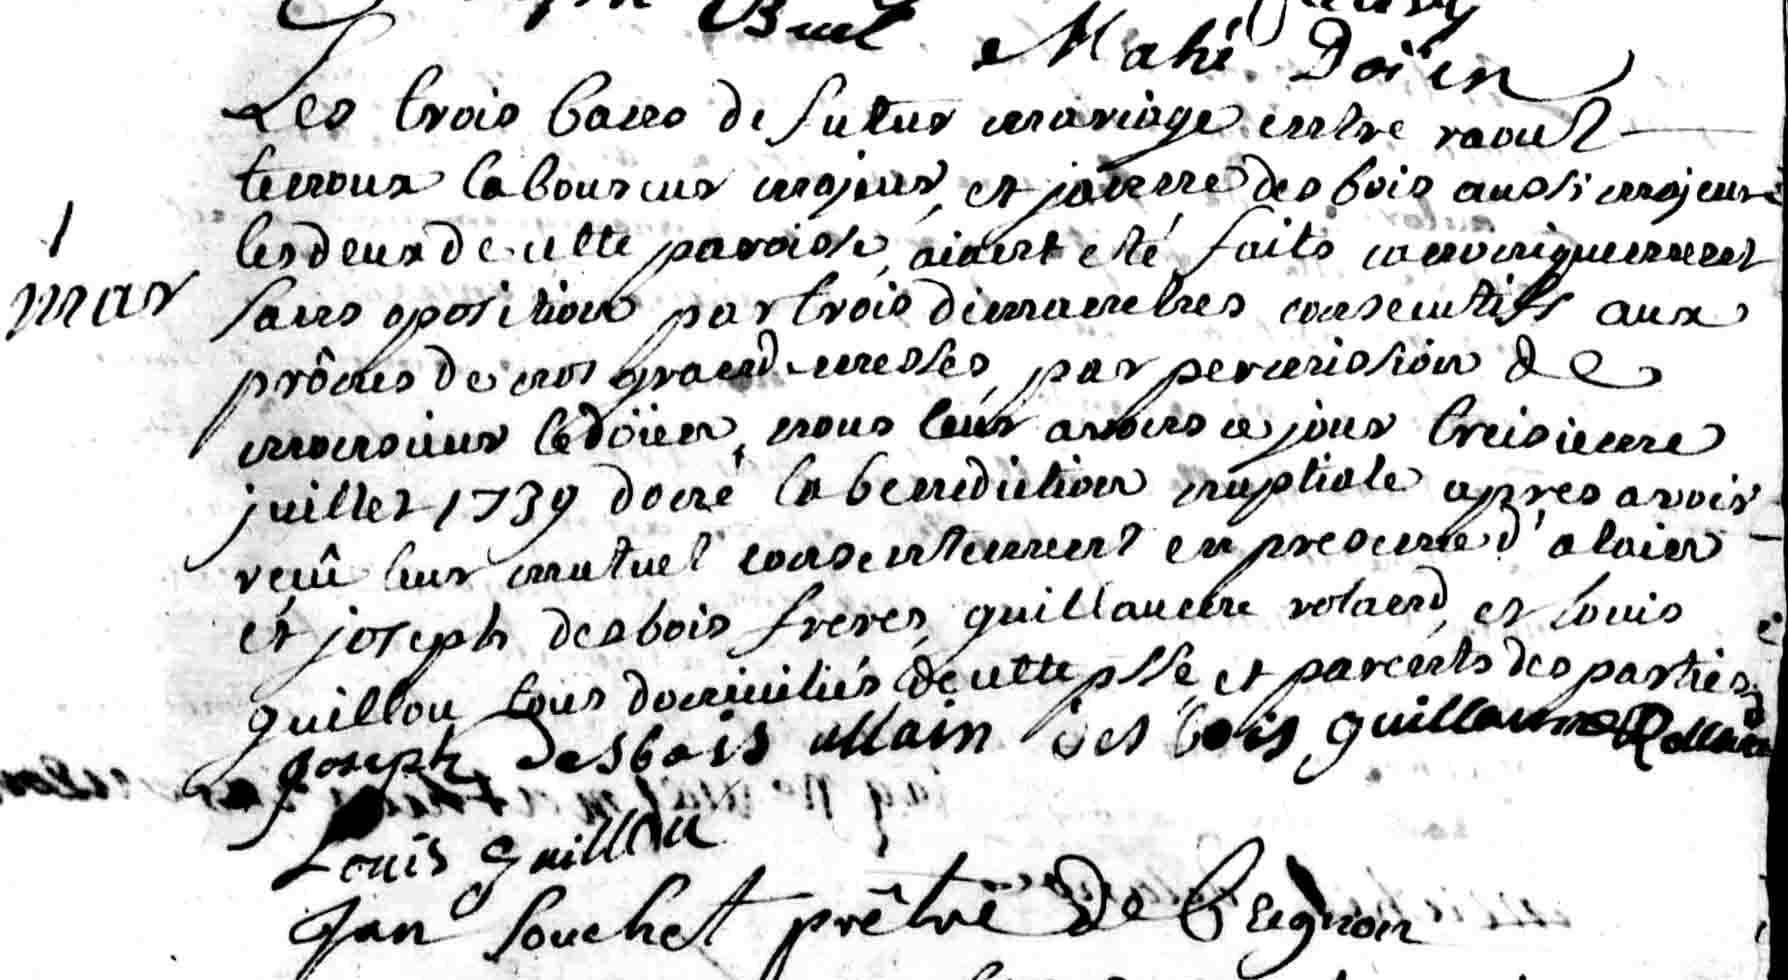 Buel
Mahé Doïen
Les trois bans de futur mariage entre raoul
temoux laboureur majeur, et janne des bois aussi majeure
les deux de cette paroisse, aiant eté faits canoniquement
1
mar
sans oposition par trois dimanches consecutifs aux
prônes de nos grand-messes, par permission de
monsieur le doïen, nous leur avons ce jour treisieme
juillet 1739 doné la benediction nuptiale apres avoir
reçû leur mutuel consentement en presence d'alain
et joseph desbois freres, guillaume roland, et louis
guillou tous domiciliés de cette psse, et parents des parties
joseph desbois allain des bois guillaume Rolland
Louis guillou
Jan Souchet prêtre de